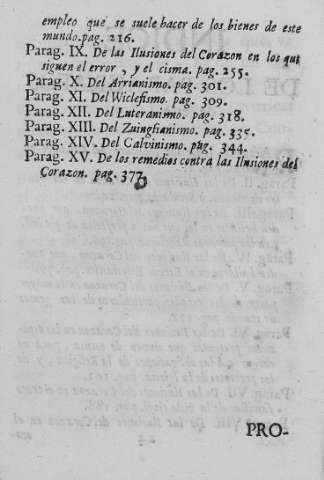 empleo que se suele hacer de los bienes de este
mundo. pag. 216.
Parag. IX. De las Ilusiones del Corazon en los que
siguen el error, y el cisma. pag. 255.
Parag. X. Del Arrianismo. pag. 301.
Parag. XI. Del Wiclefismo. pag. 309.
Parag. XII. Del Luteranismo. pag. 318.
Parag. XIII. Del Zuinglianismo. pag. 335.
Parag. XIV. Del Calvinismo. pag. 344.
Parag. XV. De los remedios contra las Ilusiones del
Corazon. pag. 377.
PRO-